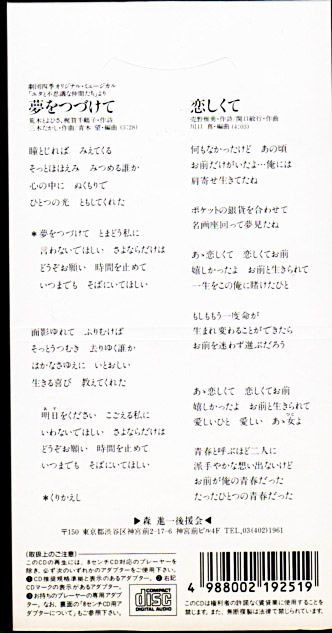 劇団四季オリジナル・ミュージカル
「ユタと不思議な仲間たち」より
夢をつづけて
荒木とよひさ、梶賀千鶴子・作詩
三木たかし・作曲 青木 望・編曲 (5:28)
瞳とじれば みえてくる
そっとほほえみ みつめる誰か
心の中に ぬくもりで
ひとつの光 ともしてくれた
*夢をつづけて とまどう私に
言わないでほしい さよならだけは
どうぞお願い 時間を止めて
いつまでも そばにいてほしい
面影ゆれて ふりむけば
そっとうつむき 去りゆく誰か
はかなさゆえに いとおしい
生きる喜び 教えてくれた
明日をください こごえる私に
いわないでほしい さよならだけは
どうぞお願い 時間を止めて
いつまでも そばにいてほしい
*くりかえし
恋しくて
売野雅勇・作詩 関口敏行・作曲
川口 真・編曲 (4:03)
何もなかったけど あの頃
お前だけがいたよ…俺には
肩寄せ生きてたね
ポケットの銀貨を合わせて
名画座回って夢見たね
あゝ恋しくて 恋しくてお前
嬉しかったよ お前と生きられて
一生をこの俺に賭けたひと
もしももう一度命が
生まれ変わることができたら
お前を迷わず選ぶだろう
あゝ恋しくて 恋しくてお前
嬉しかったよ お前と生きられて
愛しいひと 愛しい あゝ女よ
青春と呼ぶほど二人に
派手やかな想い出ないけど
お前が俺の青春だった
たったひとつの青春だった
▶森 進一後援会◀
〒150 東京都渋谷区神宮前2-17-6 神宮前ビル4F TEL.03(402)1961
(取扱上のご注意)
このCDの再生には、8センチCD対応のプレーヤーを
除き、必ず次のいずれかのアダプターをご使用下さい。
1CD推奨規格準拠と表示のあるアダプター。2右記
CDマークの表示があるアダプター。
3お持ちのプレーヤー専用アダプ
ター。なお、裏面の「8センチCD用ア
ダプターについて」も、ご参照下さい。
COMPACT
disc
DIGITAL AUDIO
4988002192519
このCDは権利者の許諾なく賃貸業に使用することを
禁じます。また、無断複製は法律で禁じられています。